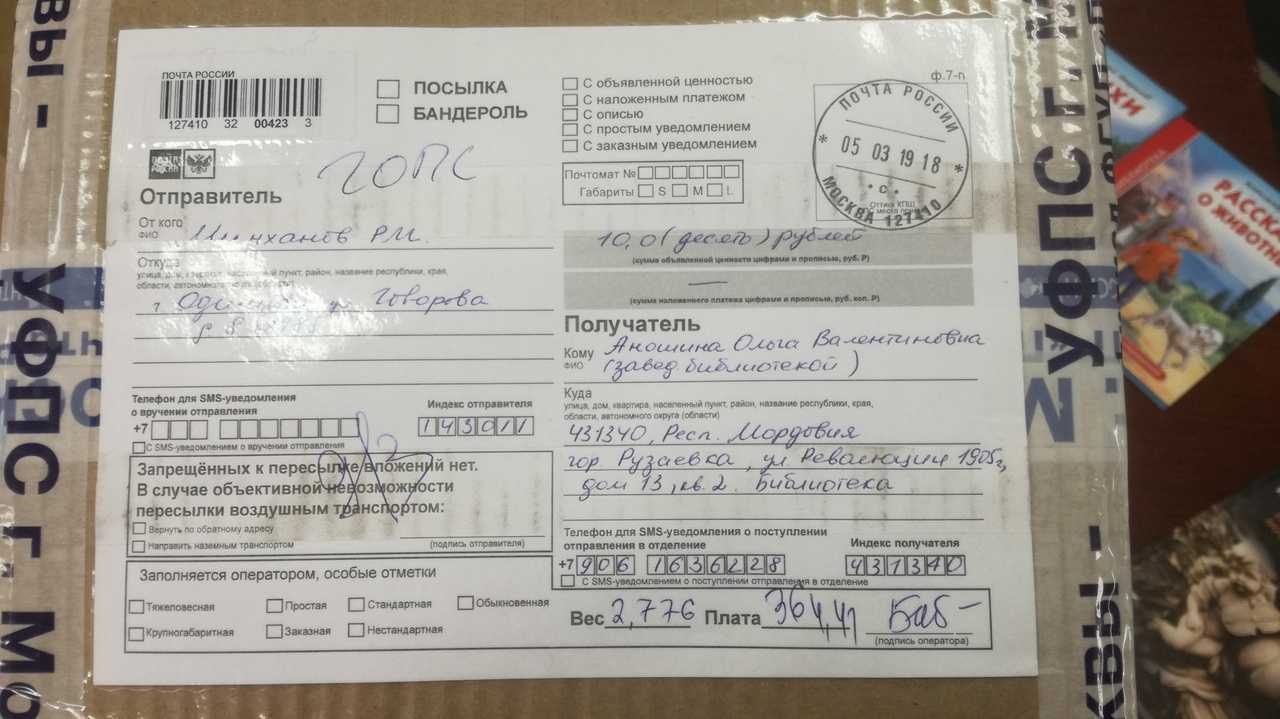 ПОЧТА РОССИИ
127410 32 00423 3
ПОСЫЛКА
БАНДЕРОЛЬ
С объявленной ценностью
С наложенным платежом
С описью
С простым уведомлением
С заказным уведомлением
ф.7-п
ПОЧТА РОССИИ
05 03 19 18
• С •
МОСКВА 127410
Оттиск КПШ
Почтомат №
Габариты S M L
ГОПС
Отправитель
От кого
ФИО
Р.М.
10,0 (десять) рублей
(сумма объявленной ценности цифрами и прописью, руб. ₽)
Откуда
улица, дом, квартира, населенный пункт, район, название республики, края,
области, автономного округа (области)
Говорова
—
(сумма наложенного платежа цифрами и прописью, руб. коп. ₽)
Получатель
Кому
ФИО
Аношина Ольга Валентиновна
(завед. библиотекой)
Куда
улица, дом, квартира, населенный пункт, район, название республики, края,
области, автономного округа (области)
431340, Респ. Мордовия
гор. Рузаевка, ул. Революции 1905г,
дом 13, кв. 2. Библиотека
Телефон для SMS-уведомления
о вручении отправления
+7
Индекс отправителя
143011
С SMS-уведомлением о вручении отправления
Запрещённых к пересылке вложений нет.
В случае объективной невозможности
пересылки воздушным транспортом:
Вернуть по обратному адресу
Направить наземным транспортом
(подпись отправителя)
Телефон для SMS-уведомления о поступлении
отправления в отделение
+7 906 1636228
Индекс получателя
431340
С SMS-уведомлением о поступлении отправления в отделение
Заполняется оператором, особые отметки
Тяжеловесная
Простая
Стандартная
Обыкновенная
Крупногабаритная
Заказная
Нестандартная
Вес 2,776 Плата 364,41
(подпись оператора)
ВЫ - УФПС г. Мо
УФПС г. М
КВЫ -
РАССКА
О ЖИВОТН